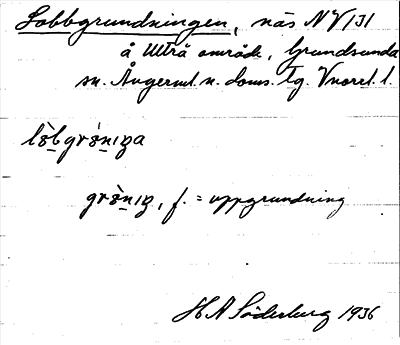 Lobbgrundningen, näs NV/131
å Utträ område, Grundsunda
sn. Ångerml. n. doms. tg. Vnorrl. l.
grɞ̀nıŋ, f. = uppgrundning
H A Söderberg 1936